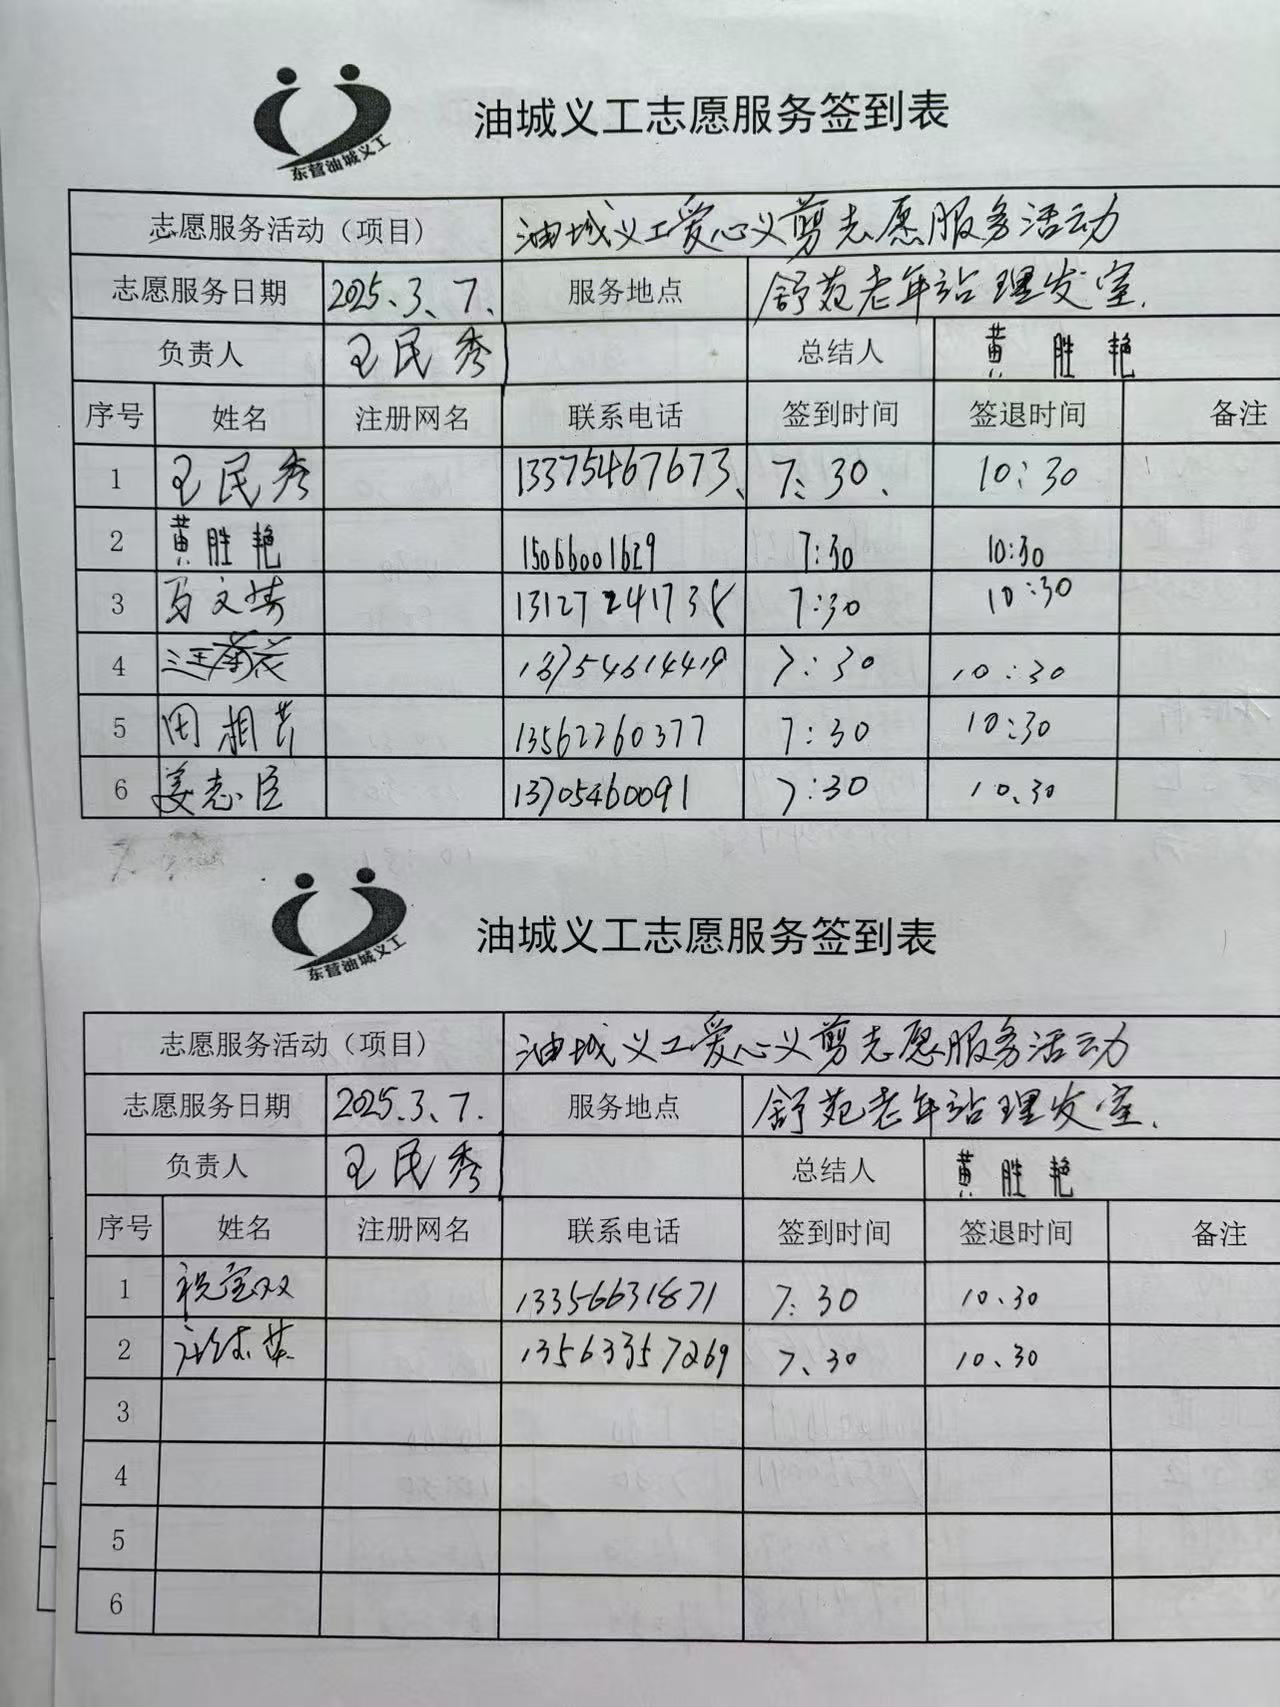 东营油城义工
油城义工志愿服务签到表
志愿服务活动（项目） 油城义工爱心义剪志愿服务活动
志愿服务日期 2025、3、7、 服务地点 舒苑老年站理发室.
负责人 王民秀 总结人 黄胜艳
序号 姓名 注册网名 联系电话 签到时间 签退时间 备注
1 王民秀 13375467673、 7:30、 10:30
2 黄胜艳 15066001629 7:30 10:30
3 马文涛 13127241735 7:30 10:30
4 13754614419 7:30 10:30
5 田相芹 13562260377 7:30 10:30
6 姜志臣 13705460091 7:30 10.30
东营油城义工
油城义工志愿服务签到表
志愿服务活动（项目） 油城义工爱心义剪志愿服务活动
志愿服务日期 2025.3、7. 服务地点 舒苑老年站理发室.
负责人 王民秀 总结人 黄胜艳
序号 姓名 注册网名 联系电话 签到时间 签退时间 备注
1 祝宝双 13356631871 7:30 10.30
2 13563357269 7、30 10、30
3
4
5
6